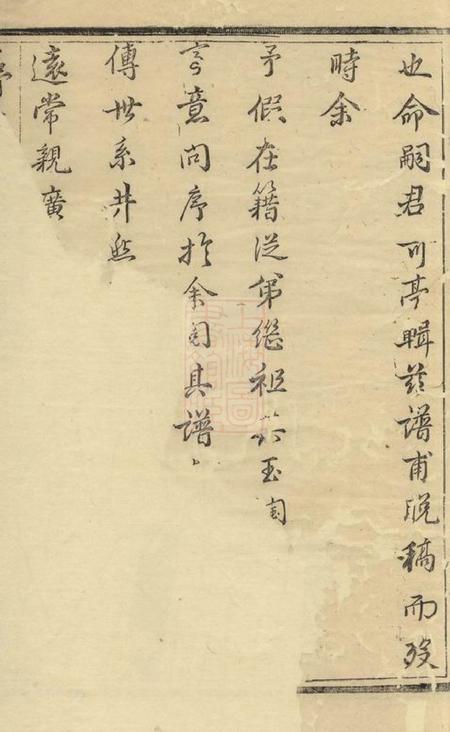 也命嗣君可亭輯茲譜甫脫稿而歿
時余
予假在籍從弟繼祖以玉
意問序於余閱其譜
傳世系井然
遠常親廣